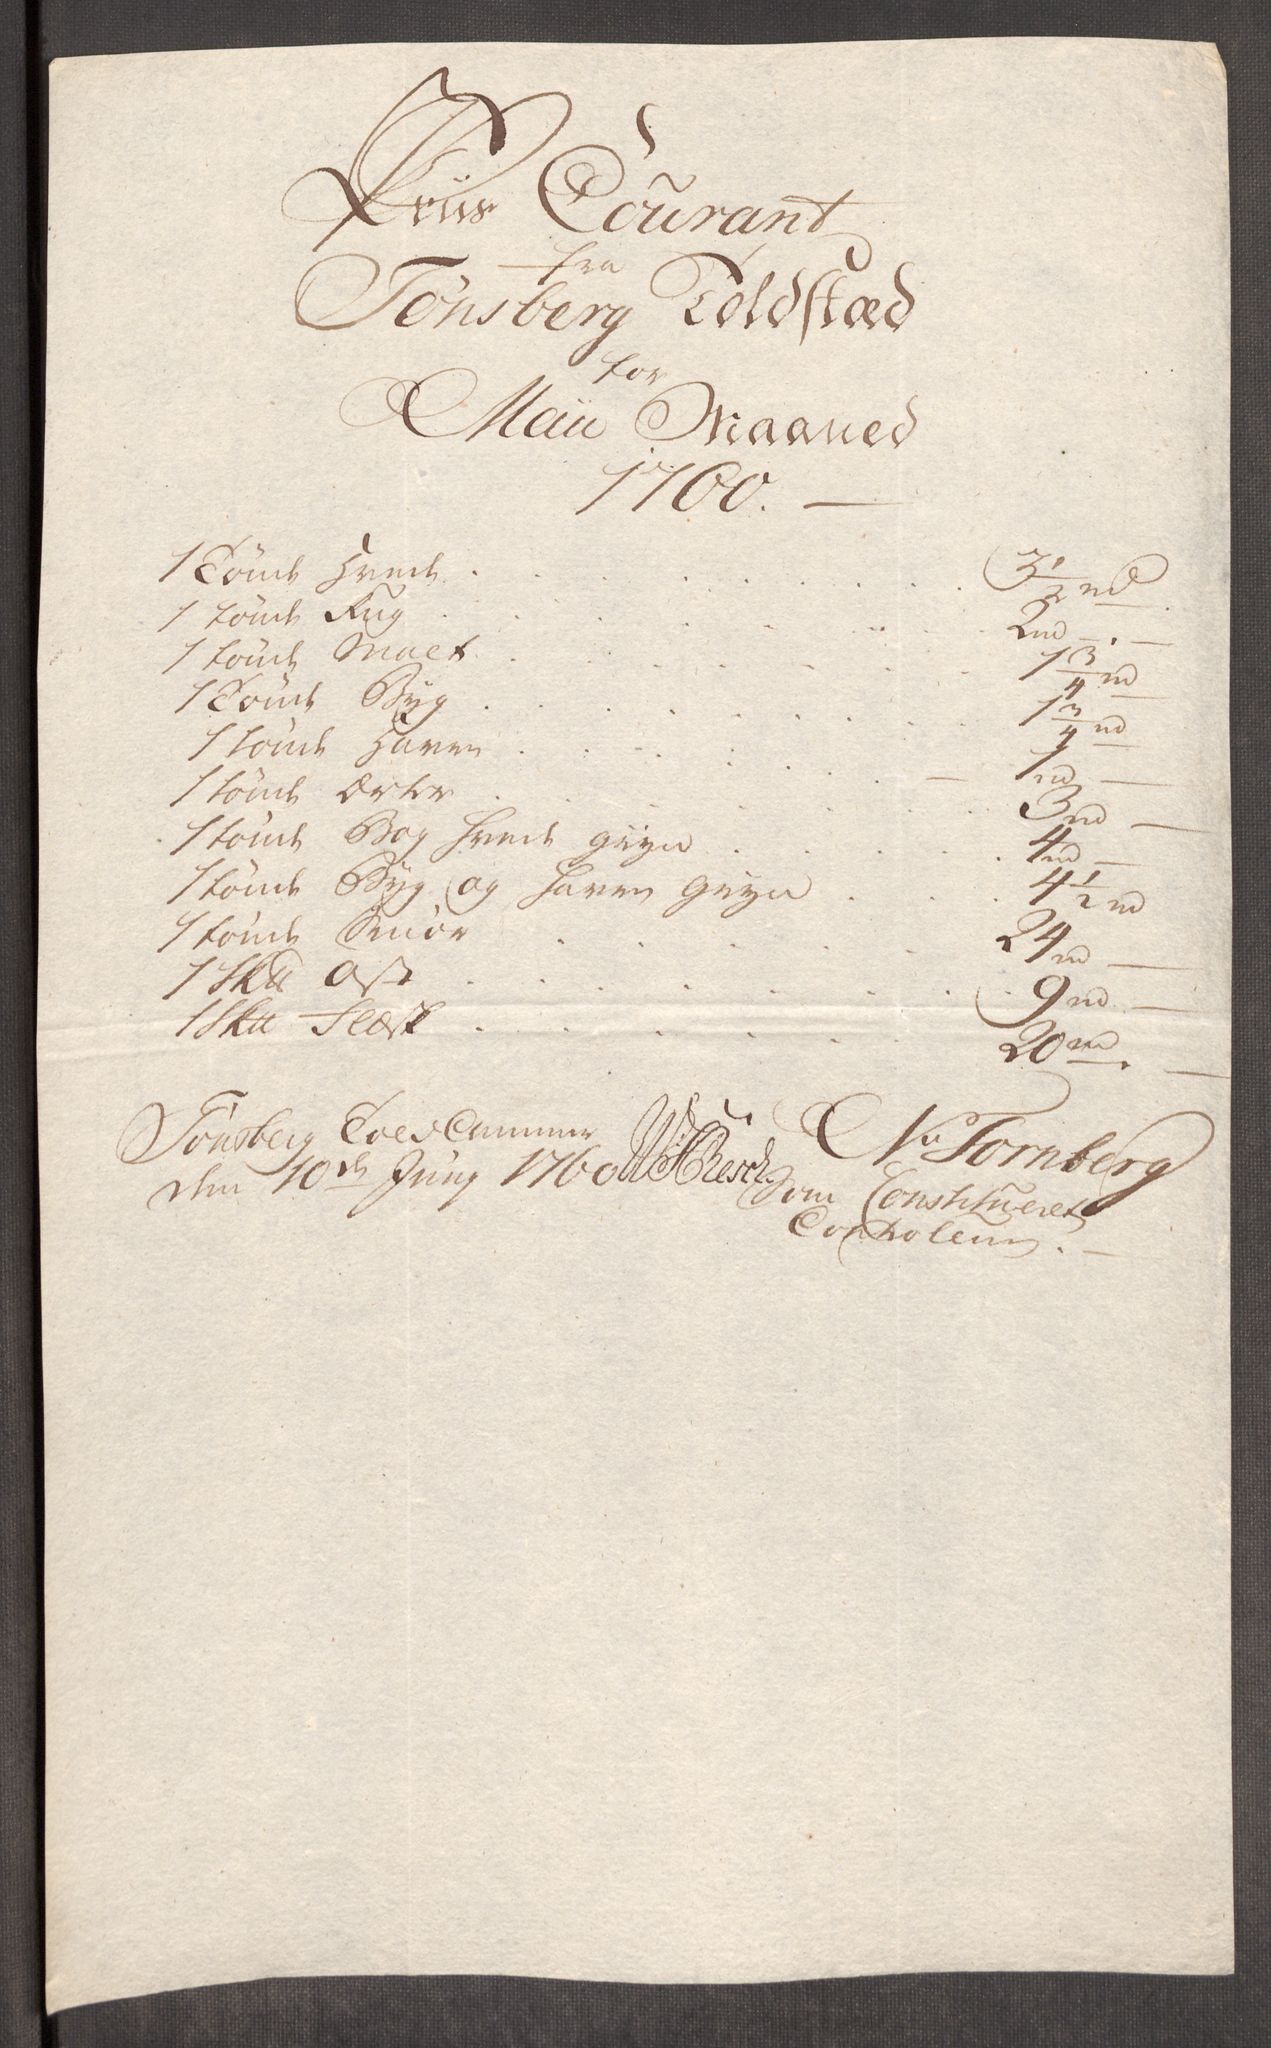 Priis Courant
fra
Tønsberg Toldstæd
for
Maii Maaned
1760.
1 Tönde Hvede 3 1/2 rd
1 tönde Rug 2 rd
1 tönde Malt 1 3/4 rd
1 Tönde Byg 1 3/4 rd
1 tönde Havre 1 rd
1 tönde Erter 3 rd
1 tönde Bog Hvede gryn 4 rd
1 tönde Byg og Havre Gryn 4 1/2 rd
1 tönde Smör 24 rd
1 Sk℔ Ost 9 rd
1 Sk℔ Flæsk 20 rd
Tönsberg Told Cammer
den 10de Juny 1760
Resch.
Tornberg
Som Constitueret
Controleur.